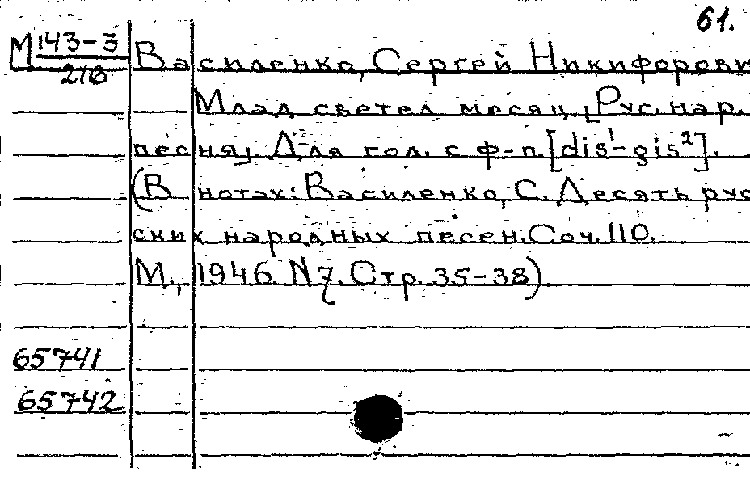 61.
М 143-3
210
Василенко, Сергей Никифорови
Млад светел месяц. [Рус. нар.
песня]. Для гол. с ф-п. [dis¹-gis²].
(В нотах: Василенко, С. Десять рус
ских народных песен. Соч. 110.
М., 1946. N 7. Стр. 35-38).
65741
65742